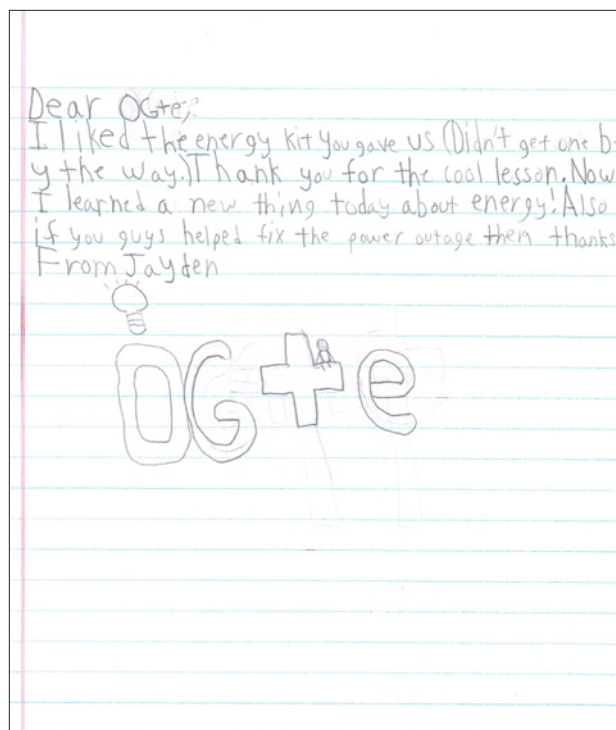 Dear OG+e,
I liked the energy kit you gave us (Didn't get one b-
y the way.) Thank you for the cool lesson. Now
I learned a new thing today about energy! Also
if you guys helped fix the power outage then thanks
From Jayden
OG+e